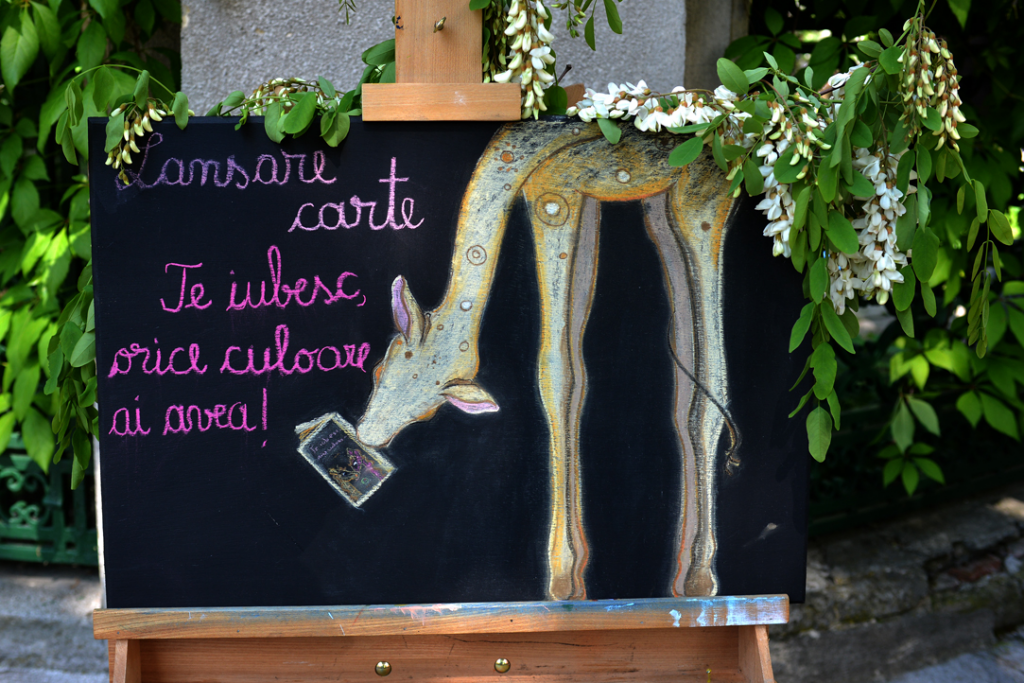 Lansare
carte
Te iubesc,
orice culoare
ai avea!